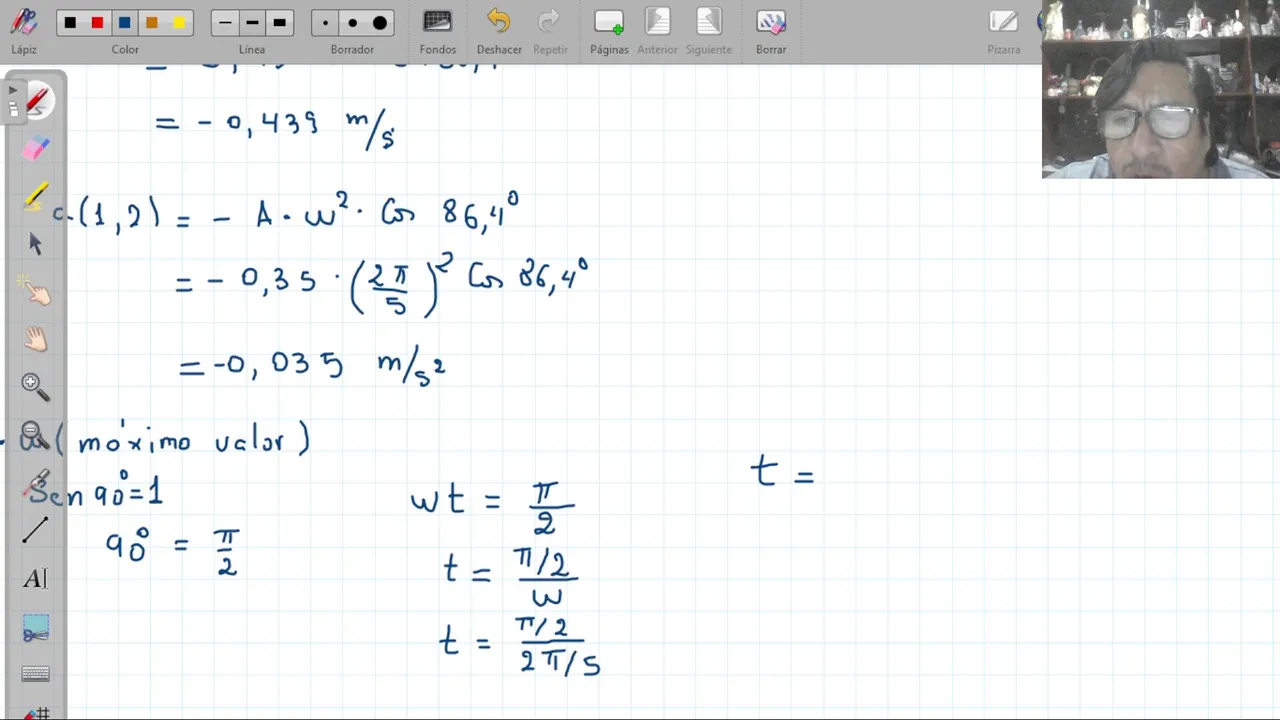 Lápiz Color Línea Borrador Fondos Deshacer Repetir Páginas Anterior Siguiente Borrar Pizarra
= - 0,439 m/s
a(1,2) = - A · w² · Cos 86,4°
= - 0,35 · (2π/5)² Cos 86,4°
= -0,035 m/s²
(máximo valor)
Sen 90° = 1
90° = π/2
wt = π/2
t = π/2 / w
t = π/2 / 2π/5
t =